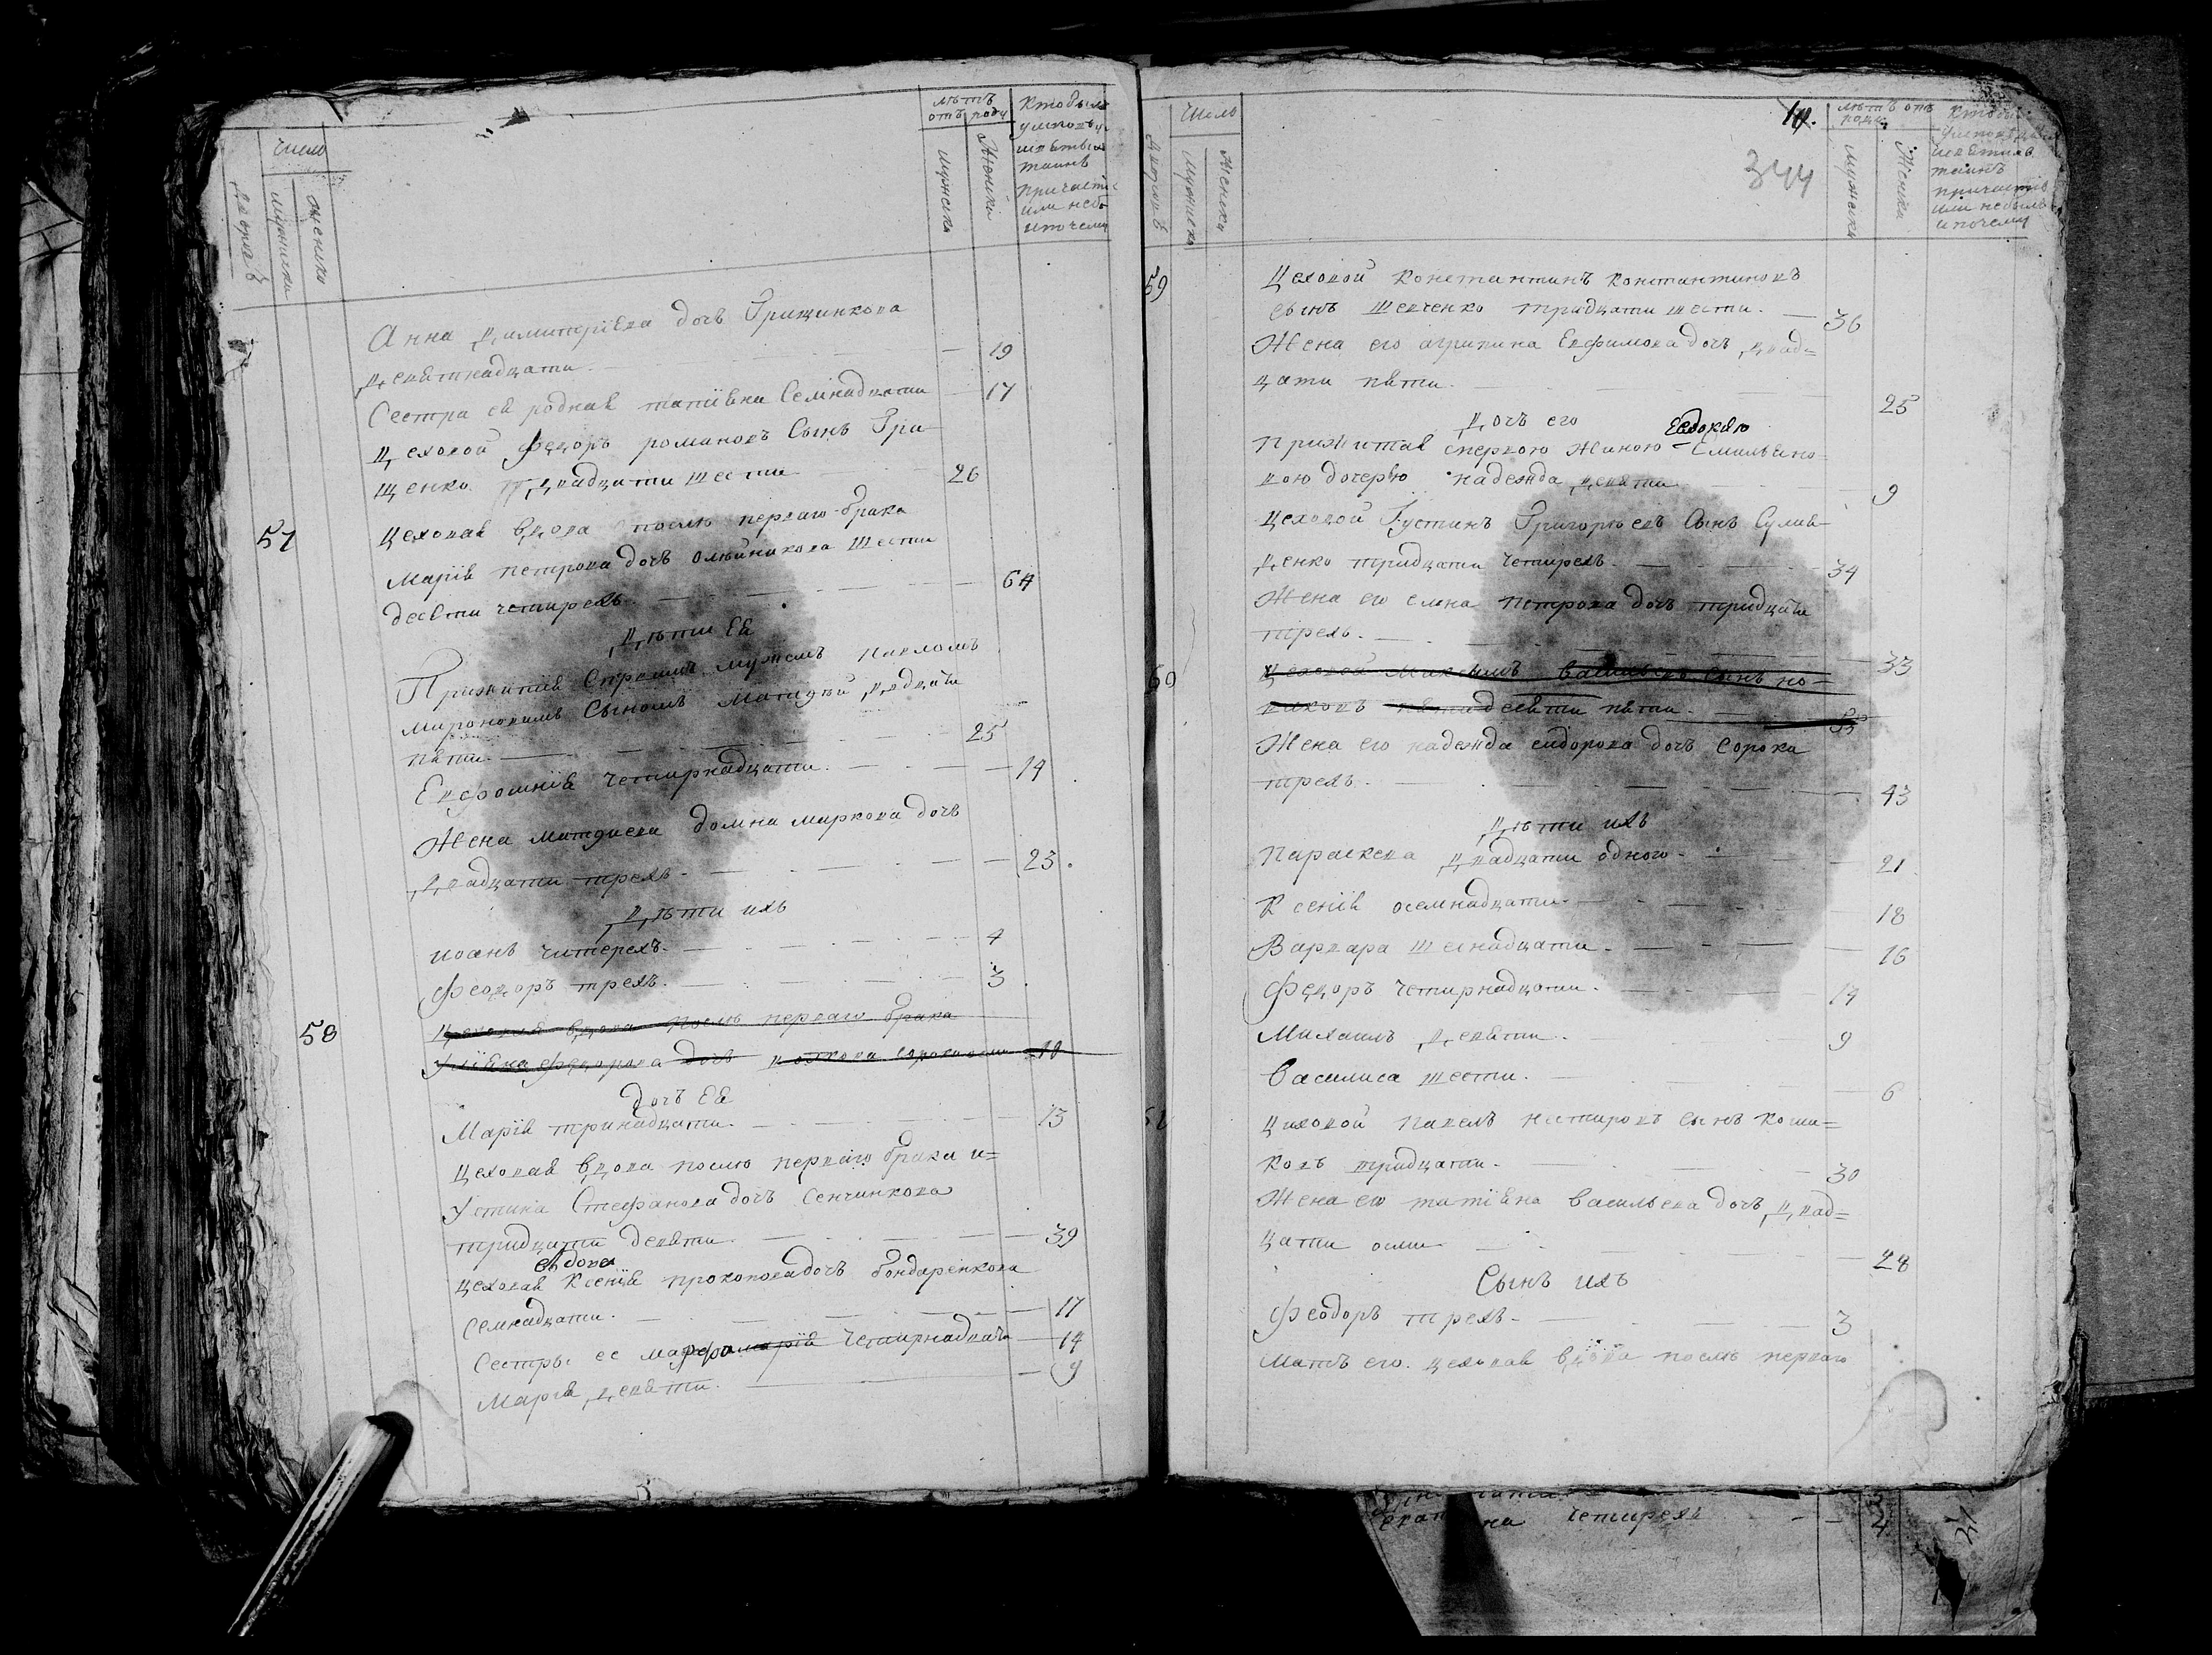 Число
дворовъ
мужиска
женска
лѣтъ
отъ роду
мужиска
Женска
Кто былъ
у исповѣди
и святыхъ
таинъ
причастія
или небылъ
и почему
Анна Димитріева дочь Грищинкова
девятнадцати. 19
Сестра ея родная татіяна Семнадцати 17
Цеховой Федоръ романовъ Сынъ Гри-
щенко двадцати шести 26
57
Цеховая вдова послѣ перваго брака
Марія петрова дочь олѣйникова Шести
десяти четирехъ. 64
Дѣти Ея
Прижитія Спервимъ мужемъ Павломъ
мироновимъ Сыномъ Матѳей двадцати
пяти. 25
Евфросинія четирнадцати. 14
Жена матѳиева домна маркова дочь
двадцати трехъ. 23.
Дѣти ихъ
иоанъ читерехъ. 4
Феодоръ трехъ. 3
58
Цеховая вдова послѣ перваго брака
Улияна Федорова дочь сорокаосми 48
дочь Ея
Марія тринадцати. 13
Цеховая вдова послѣ перваго брака и=
Устина Стефанова дочь Сенчинкова
тридцати девяти 39
вдова
Цеховая Ксенія прокопова дочь бондаренкова
Семнадцати. 17
Сестры ее марфа марія Четирнадцати 14
Марія девяти. 9
Число
дворовъ
мужиска
Женска
10.
344
лѣтъ отъ
роду
мужиска
Женска
Кто былъ
у исповѣди
и святыхъ
таинъ
причастія
или небылъ
и почему
59
Цеховой Константинъ Константиновъ
сынъ Шевченко тридцати шести. 36
Жена его агрипина Евфимова дочь двад=
цати пяти. 25
Дочь его
Евдокею
Прижитая спервою жиною Емильяно-
вою дочерью надежда девяти 9
Цеховой Густинъ Григорьевъ Сынъ Сулив-
денко тридцати четирехъ. 34
Жена его елена петрова дочь тридцати
трехъ. 33
60
Цеховой Михаилъ Васильевъ Сынъ но-
виковъ пятидесяти пяти. 55
Жена его надежда сидорова дочь сорока
трехъ. 43
Дѣти ихъ
Параскева двадцати одного. 21
Ксенія осемнадцати. 18
Варвара шеснадцати. 16
Федоръ четирнадцати. 14
Михаилъ девяти. 9
Василиса шести. 6
61
Циховой Павелъ нестировъ сынъ Коши=
ковъ тридцати. 30
Жена его татіяна васильева дочь двад=
цати осми 28
Сынъ ихъ
Феодоръ трехъ. 3
Мать его цеховая вдова послѣ перваго
четирехъ 4